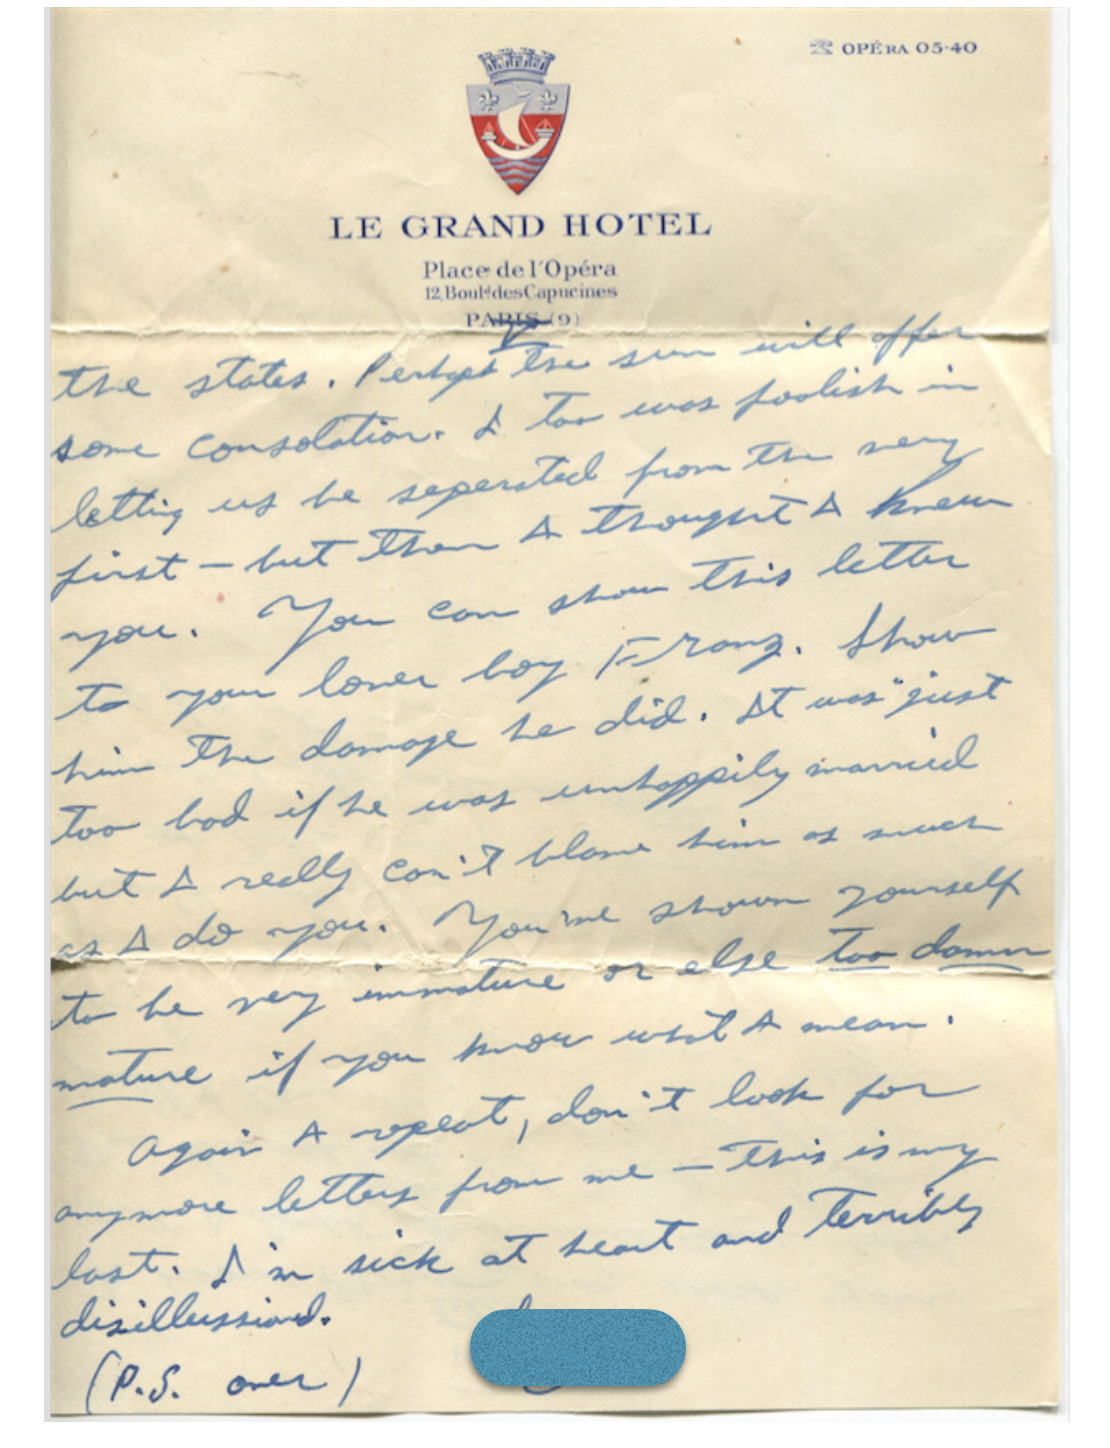 OPÉRA 05·40
LE GRAND HOTEL
Place de l'Opéra
12, Boulᵈ des Capucines
PARIS (9)
V
the states. Perhaps the sun will offer
some consolation. I too was foolish in
letting us be seperated from the very
first – but then I thought I knew
you. You can show this letter
to your lover boy Franz. Show
him the damage he did. It was just
too bad if he was unhappily married
but I really can't blame him as much
as I do you. You've shown yourself
to be very immature or else too damn
mature if you know what I mean.
Again I repeat, don't look for
anymore letters from me – this is my
last. I'm sick at heart and terribly
disillussioned.
(P.S. over)